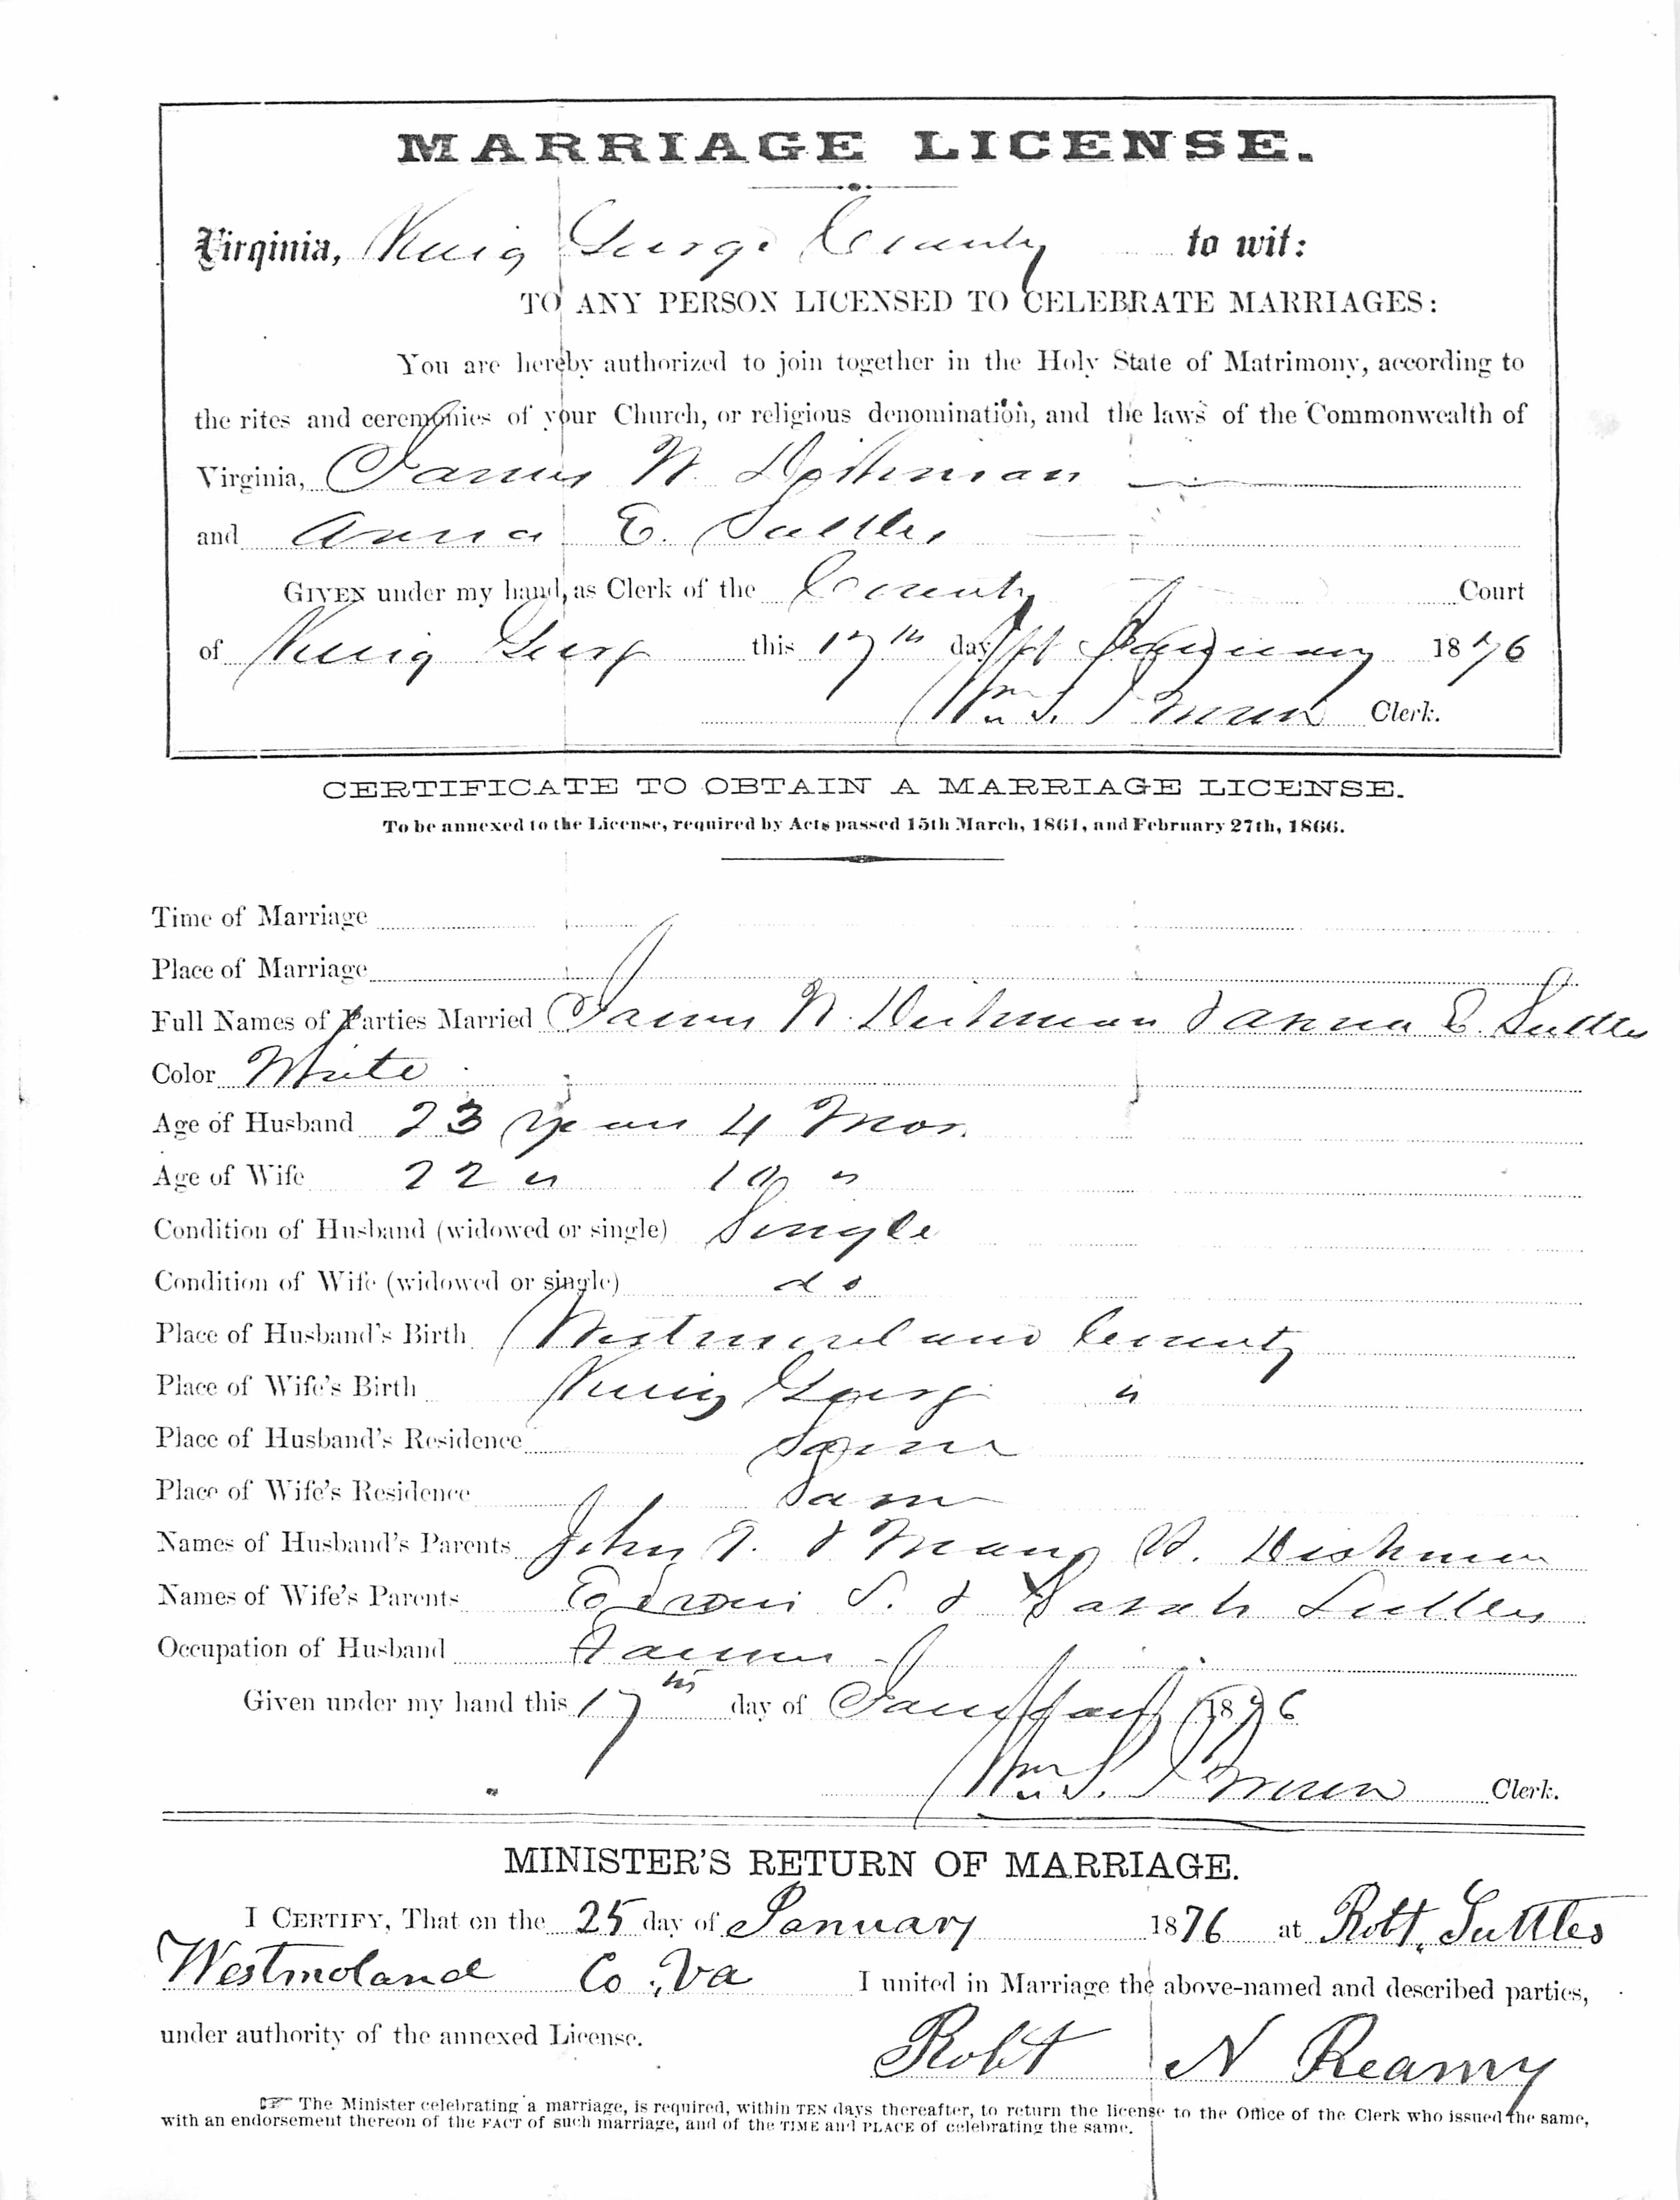 MARRIAGE LICENSE.
Virginia, King George County to wit:
TO ANY PERSON LICENSED TO CELEBRATE MARRIAGES:
You are hereby authorized to join together in the Holy State of Matrimony, according to
the rites and ceremonies of your Church, or religious denomination, and the laws of the Commonwealth of
Virginia, James W. Dishman
and Anna E. Suttles
GIVEN under my hand, as Clerk of the County Court
of King George this 17th day of January 1876
Wm S. Brown Clerk.
CERTIFICATE TO OBTAIN A MARRIAGE LICENSE.
To be annexed to the License, required by Acts passed 15th March, 1861, and February 27th, 1866.
Time of Marriage
Place of Marriage
Full Names of Parties Married James W. Dishman & Anna E. Suttles
Color White
Age of Husband 23 years 4 Mos.
Age of Wife 22 " 10 "
Condition of Husband (widowed or single) Single
Condition of Wife (widowed or single) do
Place of Husband's Birth Westmoreland County
Place of Wife's Birth King George "
Place of Husband's Residence Same
Place of Wife's Residence Same
Names of Husband's Parents John T. & Mary Dishman
Names of Wife's Parents Edwin S. & Sarah Suttles
Occupation of Husband Farmer
Given under my hand this 17th day of January 1876
Wm S. Brown Clerk.
MINISTER'S RETURN OF MARRIAGE.
I CERTIFY, That on the 25 day of January 1876 at Robt. Suttles
Westmoland Co. Va I united in Marriage the above-named and described parties,
under authority of the annexed License.
Robt N Reamy
☞ The Minister celebrating a marriage, is required, within TEN days thereafter, to return the license to the Office of the Clerk who issued the same,
with an endorsement thereon of the FACT of such marriage, and of the TIME and PLACE of celebrating the same.